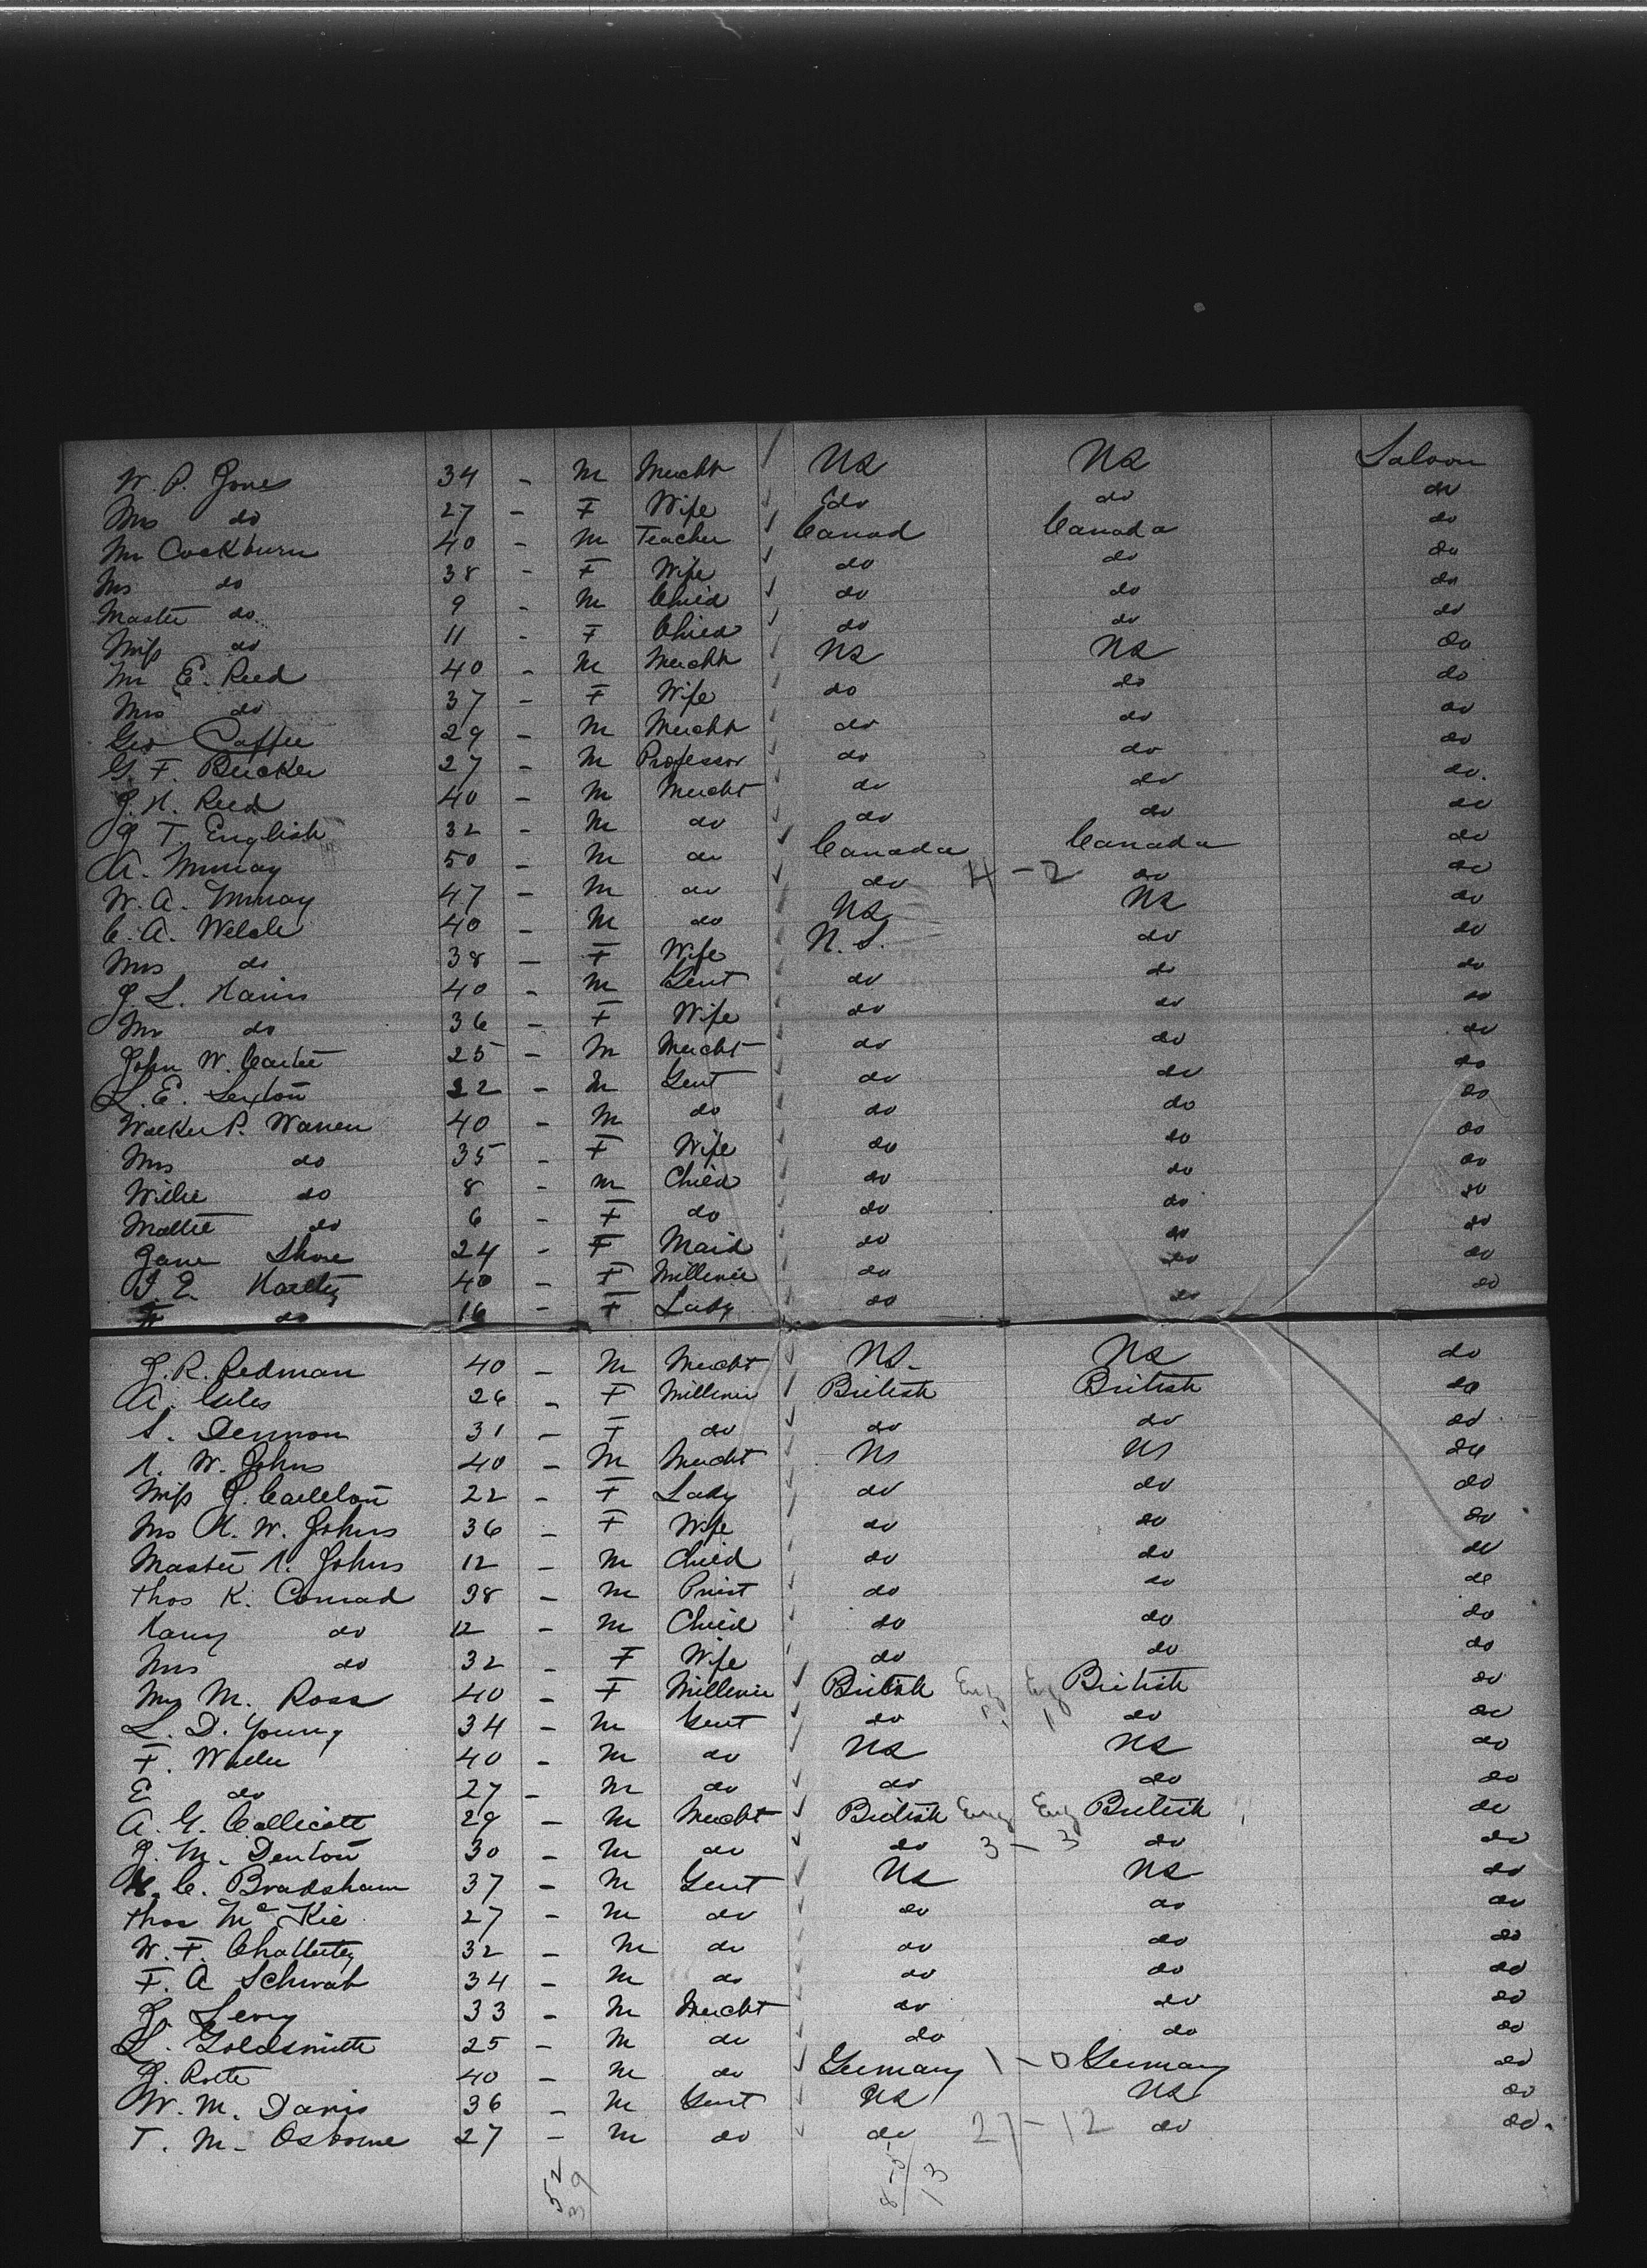 W. P. Jones 34 - M Mercht US US Saloon
Mrs do 27 - F Wife do do do
Mr Cockburn 40 - M Teacher Canad Canada do
Mrs do 38 - F Wife do do do
Master do 9 - M Child do do do
Miss do 11 - F Child do do do
Mr E. Reed 40 - M Mercht US US do
Mrs do 37 - F Wife do do do
Geo Caffee 29 - M Mercht do do do
G. F. Becker 27 - M Professor do do do
J. H. Reed 40 - M Mercht do do do.
J T. English 32 - M do do do do
A. Murray 50 - M do Canada Canada do
W. A. Murray 47 - M do do 4 - 2 do do
C. A. Welch 40 - M do US US do
Mrs do 38 - F Wife U.S. do do
J. L. Harris 40 - M Gent do do do
Mrs do 36 - F Wife do do do
John W. Carter 25 - M Mercht do do do
L. E. Sexton 22 - M Gent do do do
Walter P. Warren 40 - M do do do do
Mrs do 35 - F Wife do do do
Willie do 8 - M Child do do do
Mattie do 6 - F do do do do
Jane Shore 24 - F Maid do do do
40 - F Milliner do do do
F do 16 - F Lady do do do
J. R. Redman 40 - M Mercht US. US do
A. Giles 26 - F Milliner British British do
S. Dennon 31 - F do do do do
H. W. Johns 40 - M Mercht US US do
Miss J. Carleton 22 - F Lady do do do
Mrs H. W. Johns 36 - F Wife do do do
Master H. Johns 12 - M Child do do do
Thos K. Conrad 38 - M Priest do do do
Harry do 12 - M Child do do do
Mrs do 32 - F Wife do do do
Mrs M. Ross 40 - F Milliner British Eng Eng British do
L. D. Young 34 - M Gent do " " do do
F. Waller 40 - M do US US do
E do 27 - M do do do do
A. G. Callicott 29 - M Mercht British Eng Eng British do
J. M. Denton 30 - M do do 3 - 3 do do
H. C. Bradsham 37 - M Gent US US do
Thos McKie 27 - M do do do do
W. F. Chatterley 32 - M do do do do
F. A Schwab 34 - M do do do do
J. Levy 33 - M Mercht do do do
L. Goldsmith 25 - M do do do do
J. Rotte 40 - M do Germany 1 - 0 Germany do
W. M. Davis 36 - M Gent US US do
T. M. Osborne 27 - M do do 27 - 12 do do.
52
39
13